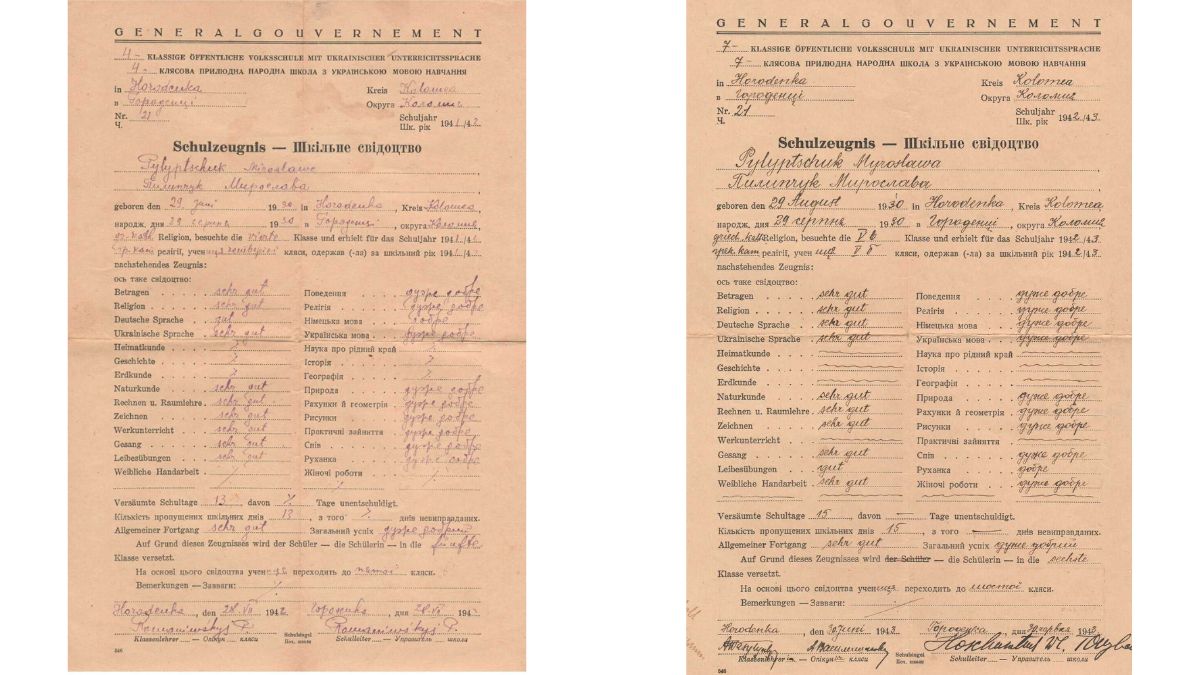 GENERALGOUVERNEMENT
4- KLASSIGE ÖFFENTLICHE VOLKSSCHULE MIT UKRAINISCHER UNTERRICHTSSPRACHE
4- КЛЯСОВА ПРИЛЮДНА НАРОДНА ШКОЛА З УКРАЇНСЬКОЮ МОВОЮ НАВЧАННЯ
in Horodenka Kreis Kolomea
в Городенці Округа Коломия
Nr. 21 Schuljahr 1941/42
Ч. Шк. рік
Schulzeugnis — Шкільне свідоцтво
Pylyptschuk Miroslawa
Пилипчук Мирослава
geboren den 29 Juni 1930 in Horodenka, Kreis Kolomea,
народж. дня 29 серпня 1930 в Городенці, округа Коломия,
gr.-kath Religion, besuchte die vierte Klasse und erhielt für das Schuljahr 1941/42
гр. кат релігії, учениця четвертої кляси, одержав (-ла) за шкільний рік 1941/42
nachstehendes Zeugnis:
ось таке свідоцтво:
Betragen sehr gut Поведення дуже добре
Religion sehr gut Релігія дуже добре
Deutsche Sprache gut Німецька мова добре
Ukrainische Sprache sehr gut Українська мова дуже добре
Heimatkunde Наука про рідний край
Geschichte Історія
Erdkunde Географія
Naturkunde sehr gut Природа дуже добре
Rechnen u. Raumlehre sehr gut Рахунки й геометрія дуже добре
Zeichnen sehr gut Рисунки дуже добре
Werkunterricht sehr gut Практичні зайняття дуже добре
Gesang sehr gut Спів дуже добре
Leibesübungen sehr gut Руханка дуже добре
Weibliche Handarbeit Жіночі роботи
Versäumte Schultage 13 davon Tage unentschuldigt.
Кількість пропущених шкільних днів 13, з того днів невиправданих.
Allgemeiner Fortgang sehr gut Загальний успіх дуже добрий
Auf Grund dieses Zeugnisses wird der Schüler — die Schülerin — in die fünfte
Klasse versetzt.
На основі цього свідоцтва учениця переходить до пятої кляси.
Bemerkungen — Завваги:
Horodenka, den 28.VI 1942 Городенка, дня 28.VI 194
Romaniwskyj P. Romaniwskyj P.
Klassenlehrer — Опікун кляси Schulsiegel Schulleiter — Управитель школи
Печ. школи
546
GENERALGOUVERNEMENT
7- KLASSIGE ÖFFENTLICHE VOLKSSCHULE MIT UKRAINISCHER UNTERRICHTSSPRACHE
7- КЛЯСОВА ПРИЛЮДНА НАРОДНА ШКОЛА З УКРАЇНСЬКОЮ МОВОЮ НАВЧАННЯ
in Horodenka Kreis Kolomea
в Городенці Округа Коломия
Nr. 21 Schuljahr 1942/43
Ч. Шк. рік
Schulzeugnis — Шкільне свідоцтво
Pylyptschuk Myroslawa
Пилипчук Мирослава
geboren den 29 August 1930 in Horodenka, Kreis Kolomea
народж. дня 29 серпня 1930 в Городенці, округа Коломия
griech. kath. Religion, besuchte die V b Klasse und erhielt für das Schuljahr 1942/43
грек. кат. релігії, учениця V б кляси, одержав (-ла) за шкільний рік 1942/43
nachstehendes Zeugnis:
ось таке свідоцтво:
Betragen sehr gut Поведення дуже добре
Religion sehr gut Релігія дуже добре
Deutsche Sprache sehr gut Німецька мова дуже добре
Ukrainische Sprache sehr gut Українська мова дуже добре
Heimatkunde Наука про рідний край
Geschichte Історія
Erdkunde Географія
Naturkunde sehr gut Природа дуже добре
Rechnen u. Raumlehre sehr gut Рахунки й геометрія дуже добре
Zeichnen sehr gut Рисунки дуже добре
Werkunterricht Практичні зайняття
Gesang sehr gut Спів дуже добре
Leibesübungen gut Руханка добре
Weibliche Handarbeit sehr gut Жіночі роботи дуже добре
Versäumte Schultage 15 davon — Tage unentschuldigt.
Кількість пропущених шкільних днів 15, з того — днів невиправданих.
Allgemeiner Fortgang sehr gut Загальний успіх дуже добрий
Auf Grund dieses Zeugnisses wird der Schüler — die Schülerin — in die sechste
Klasse versetzt.
На основі цього свідоцтва учениця переходить до шостої кляси.
Bemerkungen — Завваги:
Horodenka, den 30 Juni 1943 Городенка, дня 30 червня 1943
Klassenlehrer — Опікун кляси Schulsiegel Schulleiter — Управитель школи
Печ. школи
546